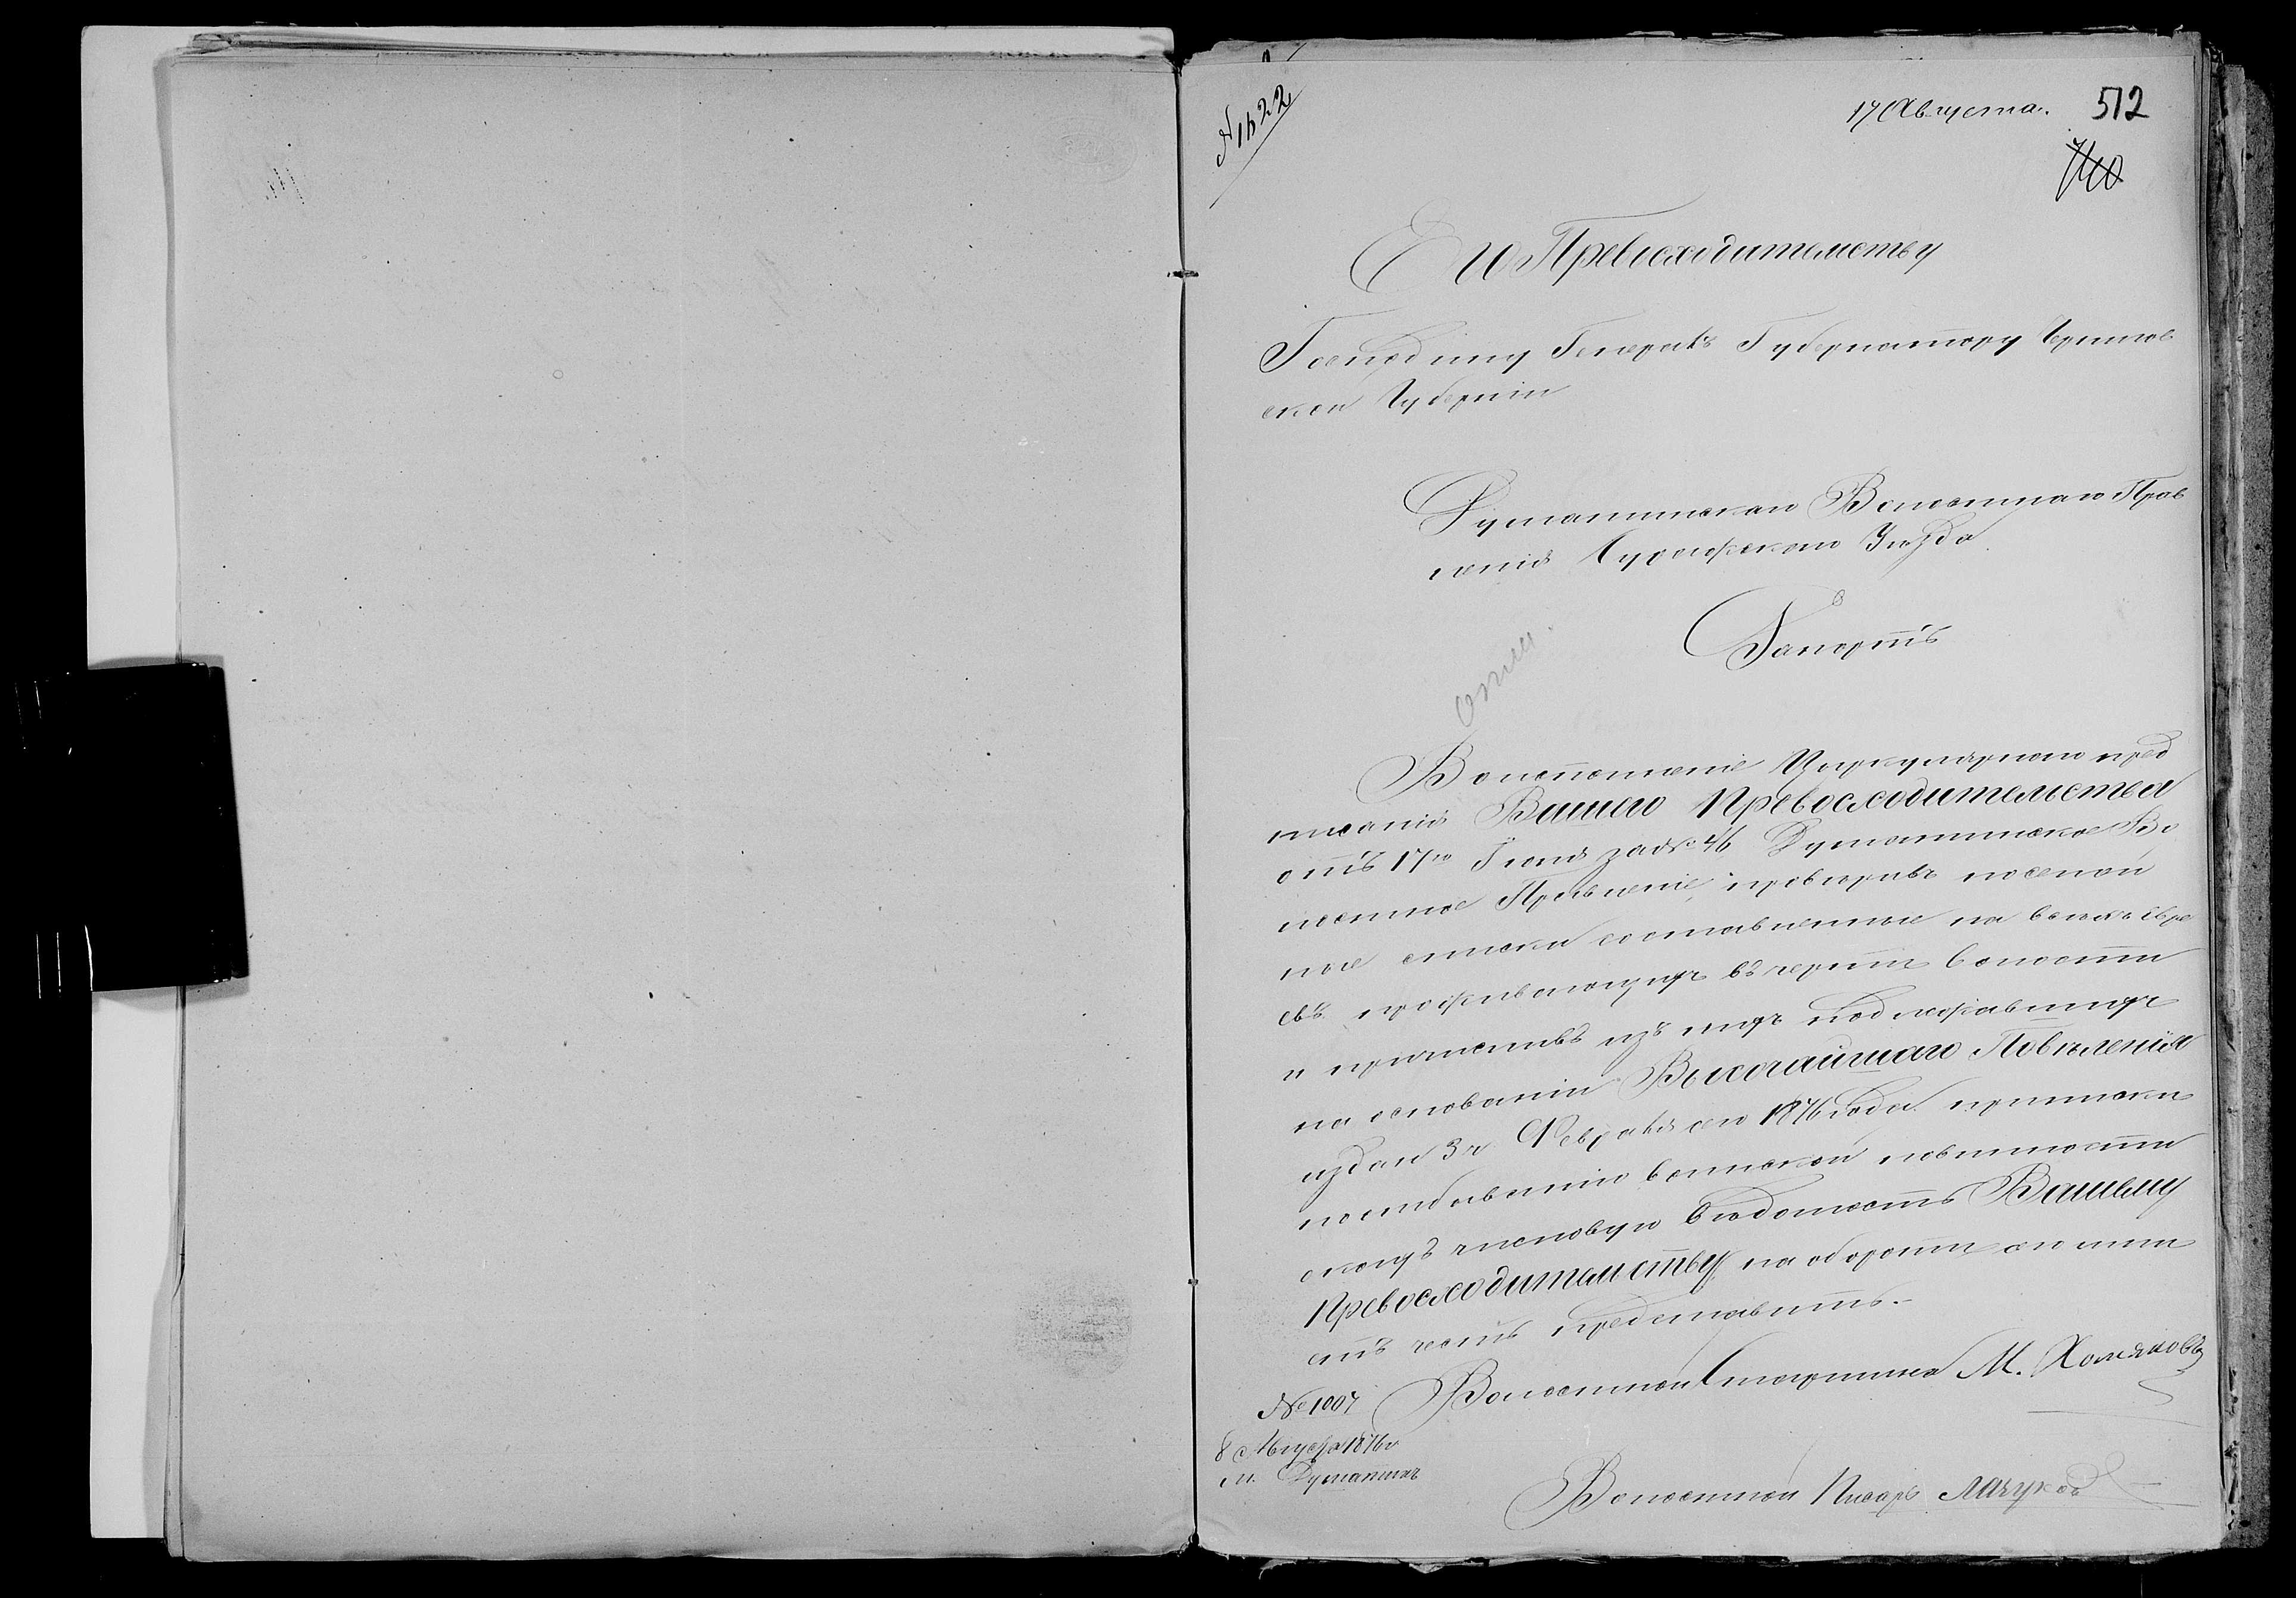 № 1622
17 Августа. 512
740
Его Превосходительству
Господину Генералъ Губернатору Чернигов
ской Губерніи
Душатинскаго Волостнаго Прав
ленія Суражскаго Уѣзда
Рапортъ
Во исполненіе Циркулярнаго пред
писанія Вашего Превосходительства
отъ 17го Іюня за №46 Душатинское Во
лостное Правленіе, провѣривъ посемей
ные списки составленные на всѣхъ евре
евъ проживающихъ въ чертѣ волости
и причисливъ изъ нихъ подлежавшихъ
на основаніи Высочайшаго Повѣленія
издан 3го Февраля сего 1876 года приписки
по отбыванію воинской повинности
числовую вѣдомость Вашему
Превосходительству на оборотѣ сего имѣ
етъ честь представить.-
Волостной Старшина М. Хомяковъ
№ 1007
8 Августа 1876 г
м. Душатинъ
Волостной Писарь